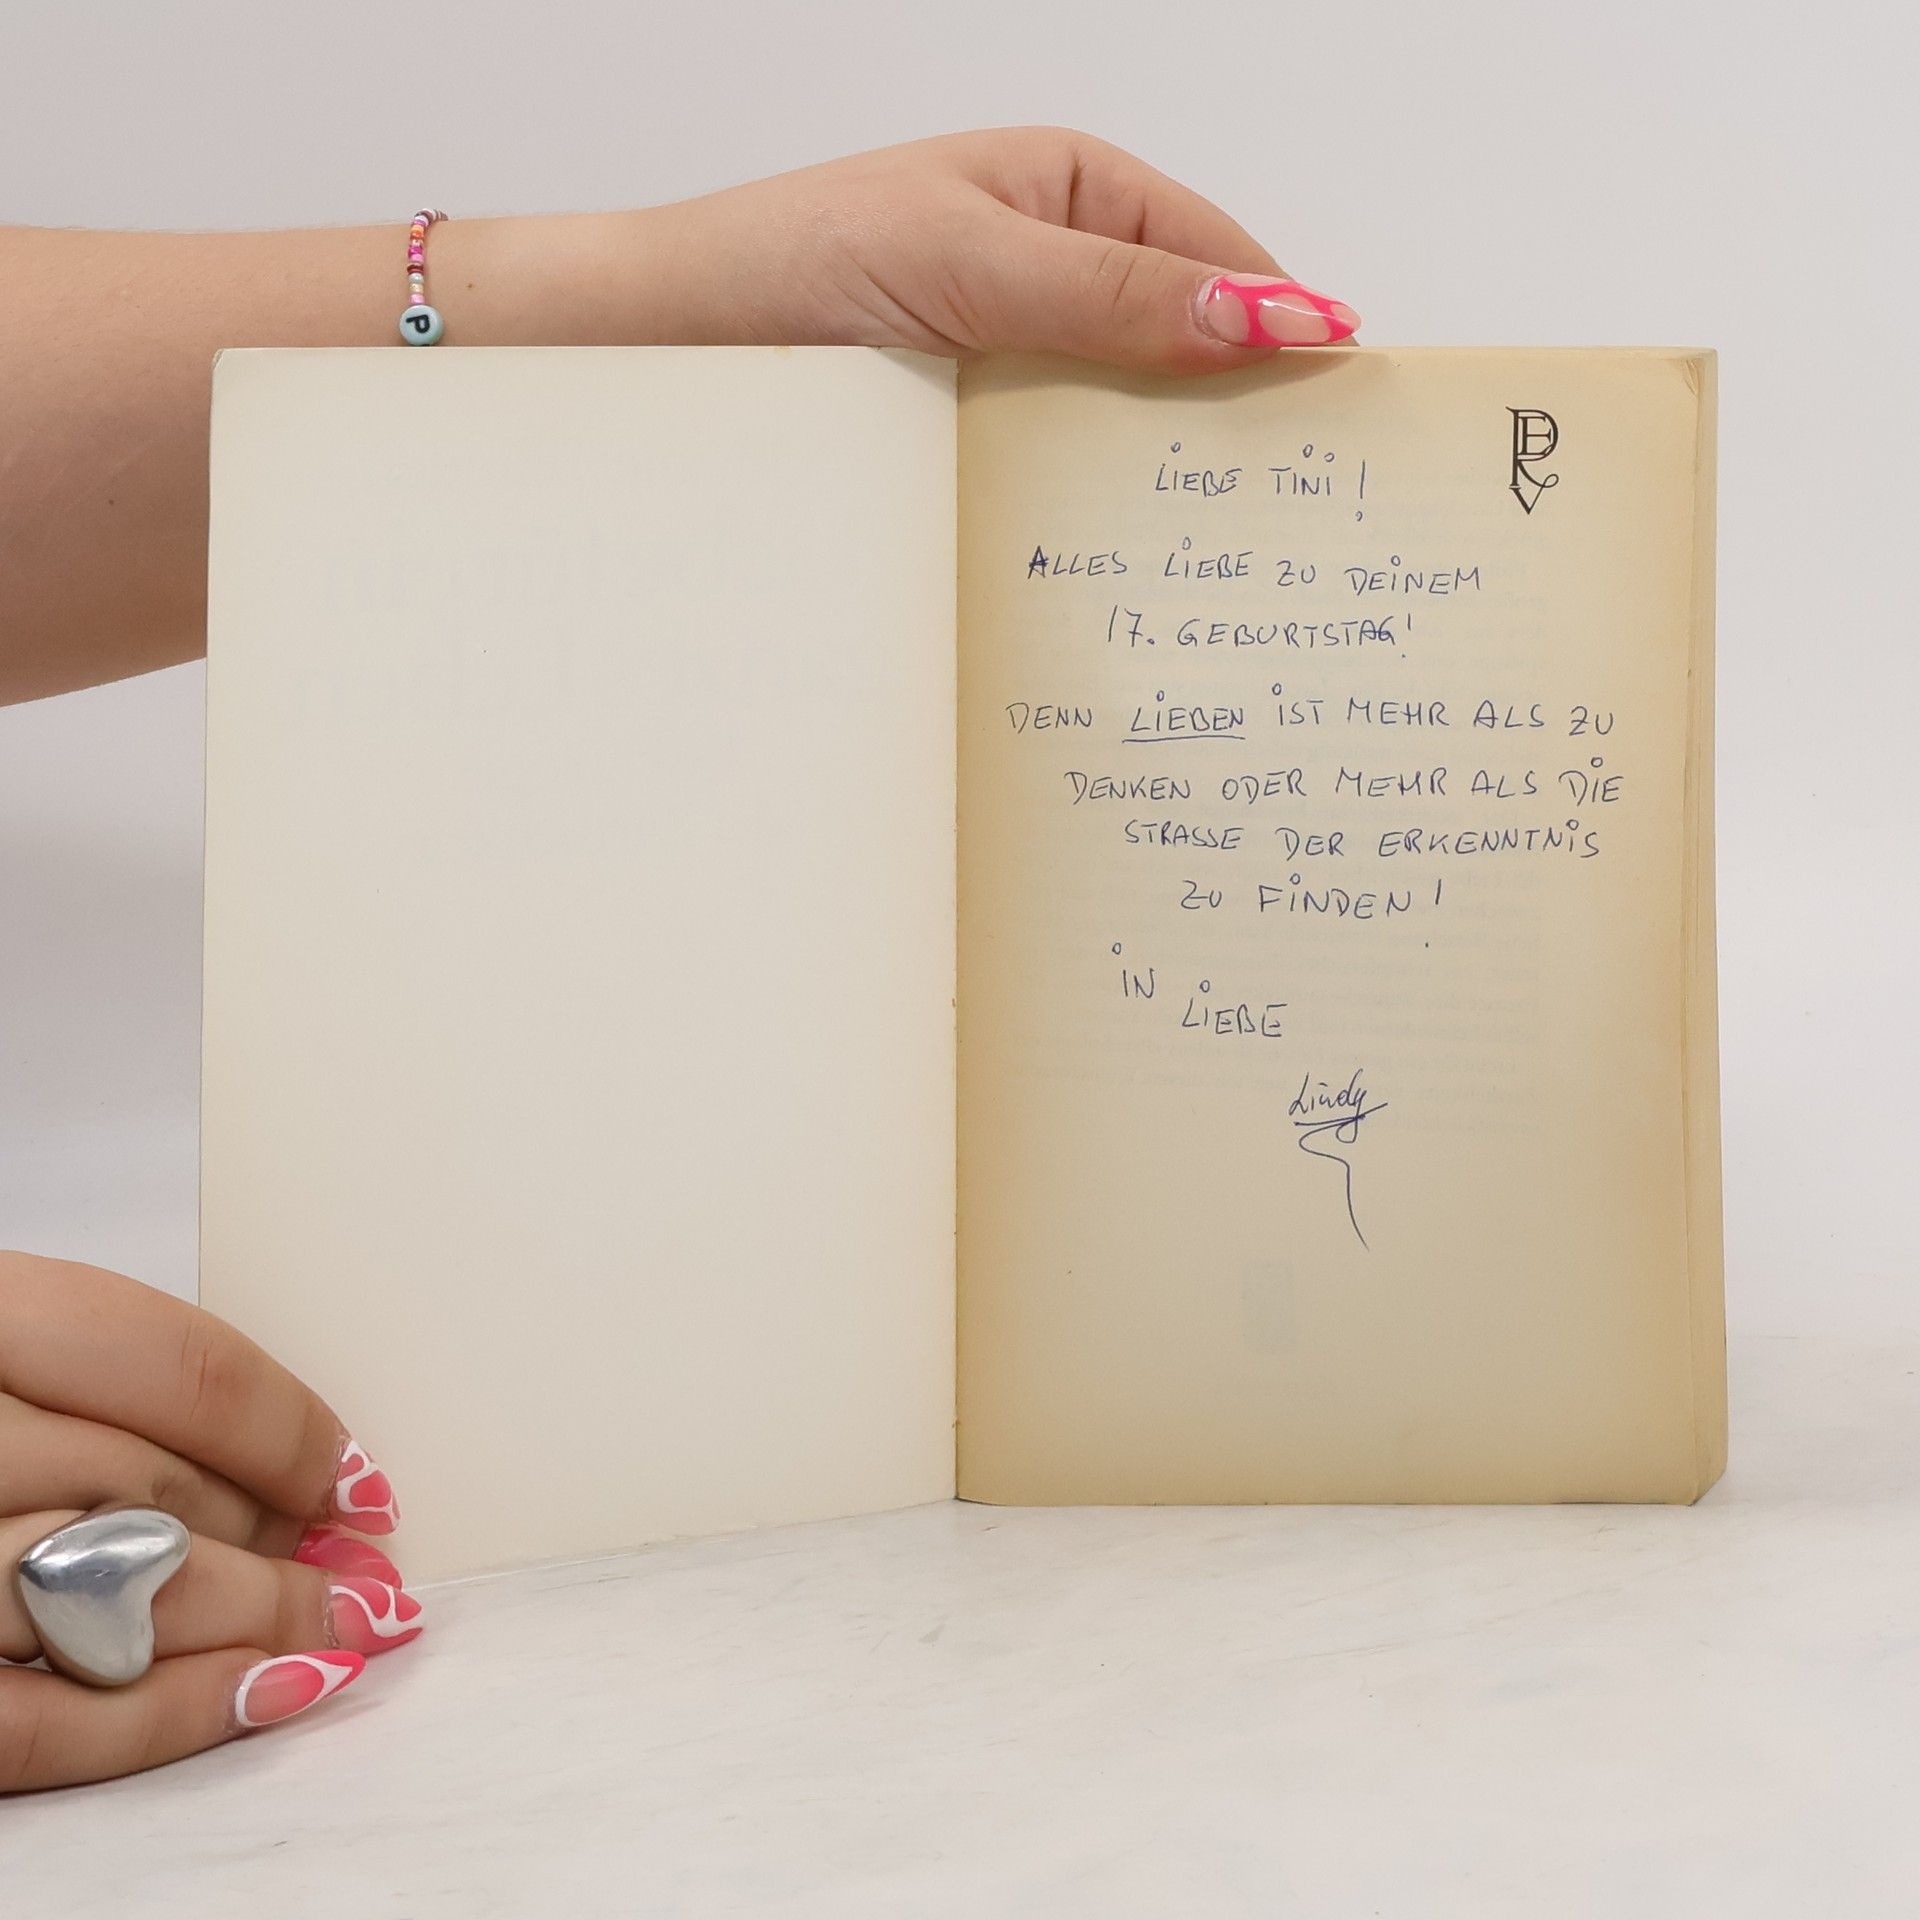 P
LIEBE TINI!
ALLES LIEBE ZU DEINEM
17. GEBURTSTAG!
DENN LIEBEN IST MEHR ALS ZU
DENKEN ODER MEHR ALS DIE
STRASSE DER ERKENNTNIS
ZU FINDEN!
IN
LIEBE
Lindy